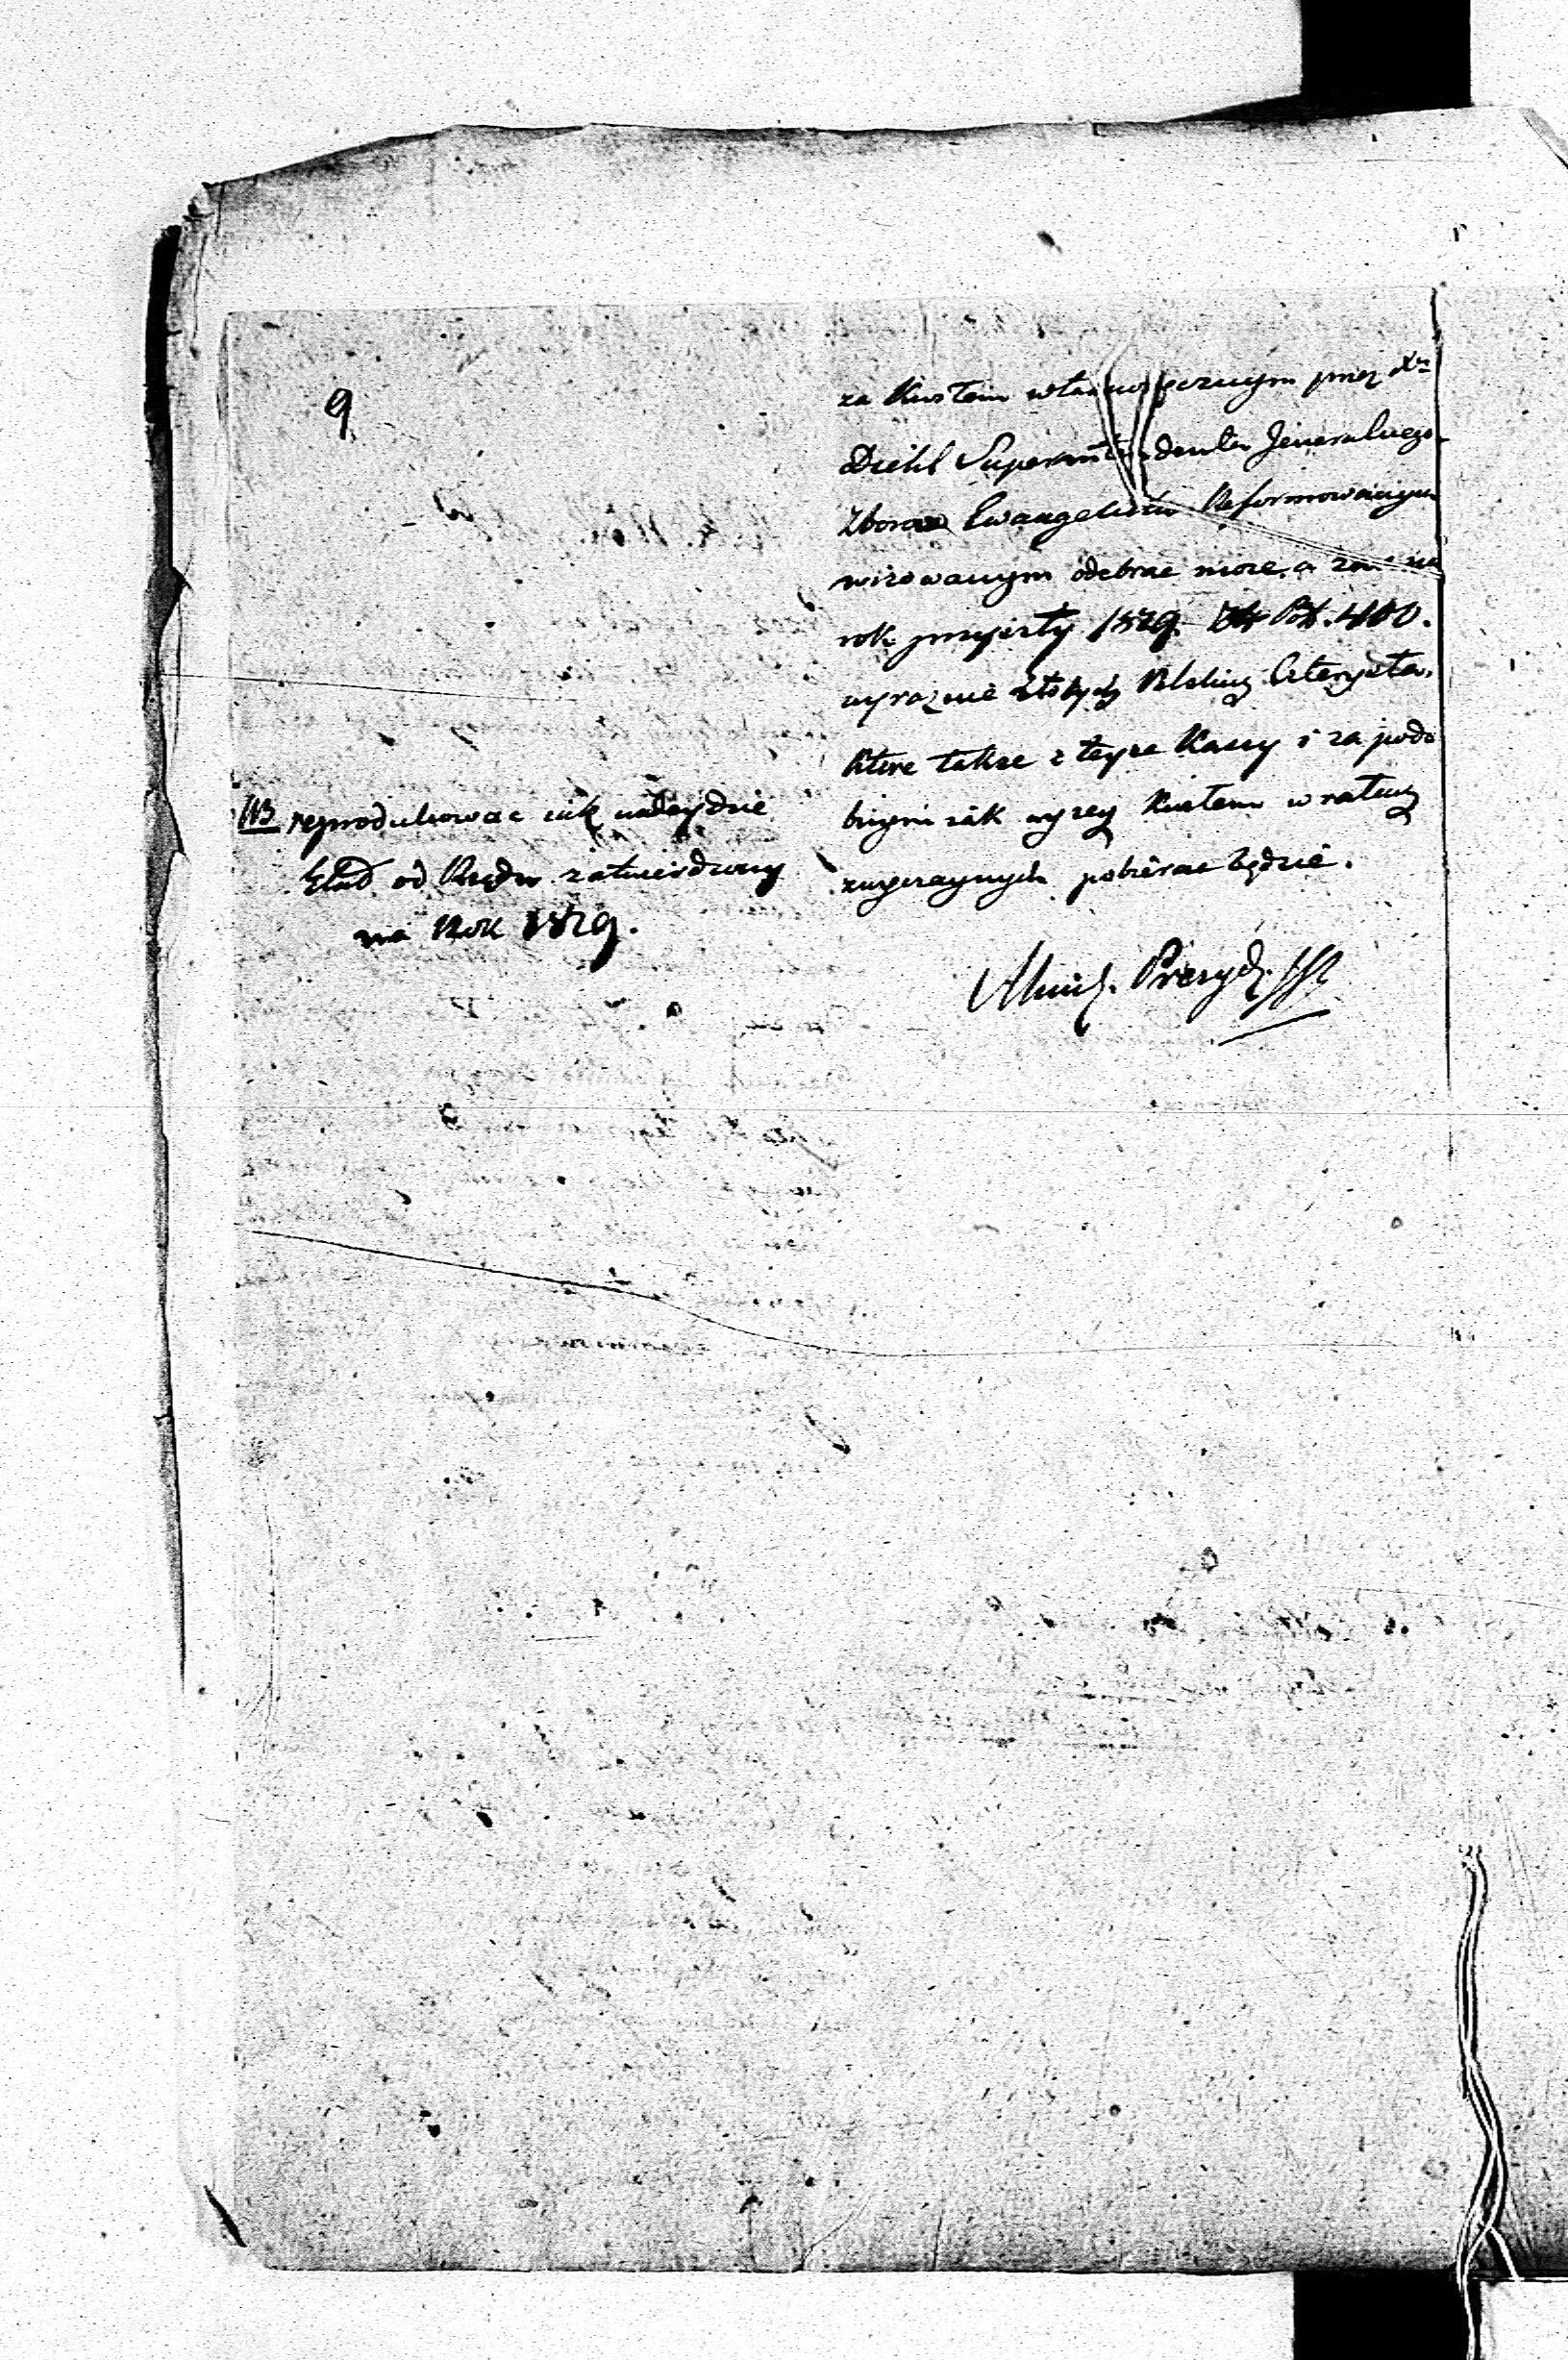 9
za Kwitem własnoręcznym przez Xa
Diehl Superintendenta Jeneralnego
Zborow Ewangelicko Reformowanym
wizowanym odebrac może, a
rok przyszły 1829. Zł Pol. 400.
wyraznie złotych Polskich Czterysta,
które także z teyże Kassy i za podo
bnymi iak wyżey Kwitem w ratach
zwyczaynych pobierac będzie.
NB reprodukowac iak nadeydzie
Etat od Rządu zatwierdzony
na Rok 1829.
Prezyd.